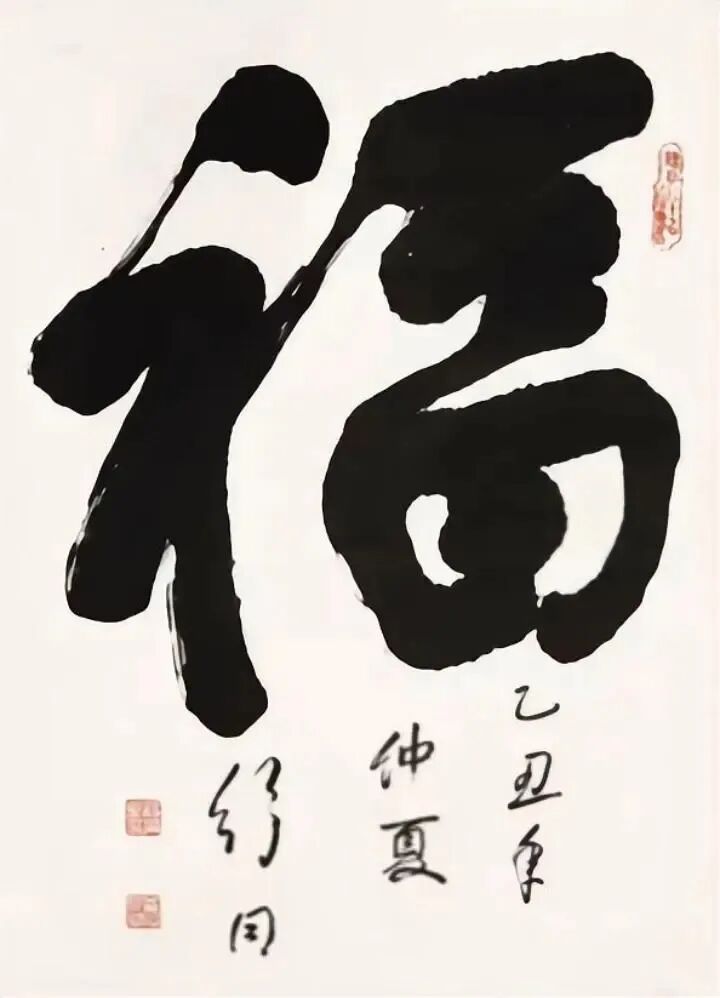 福
乙丑年
仲夏
舒同